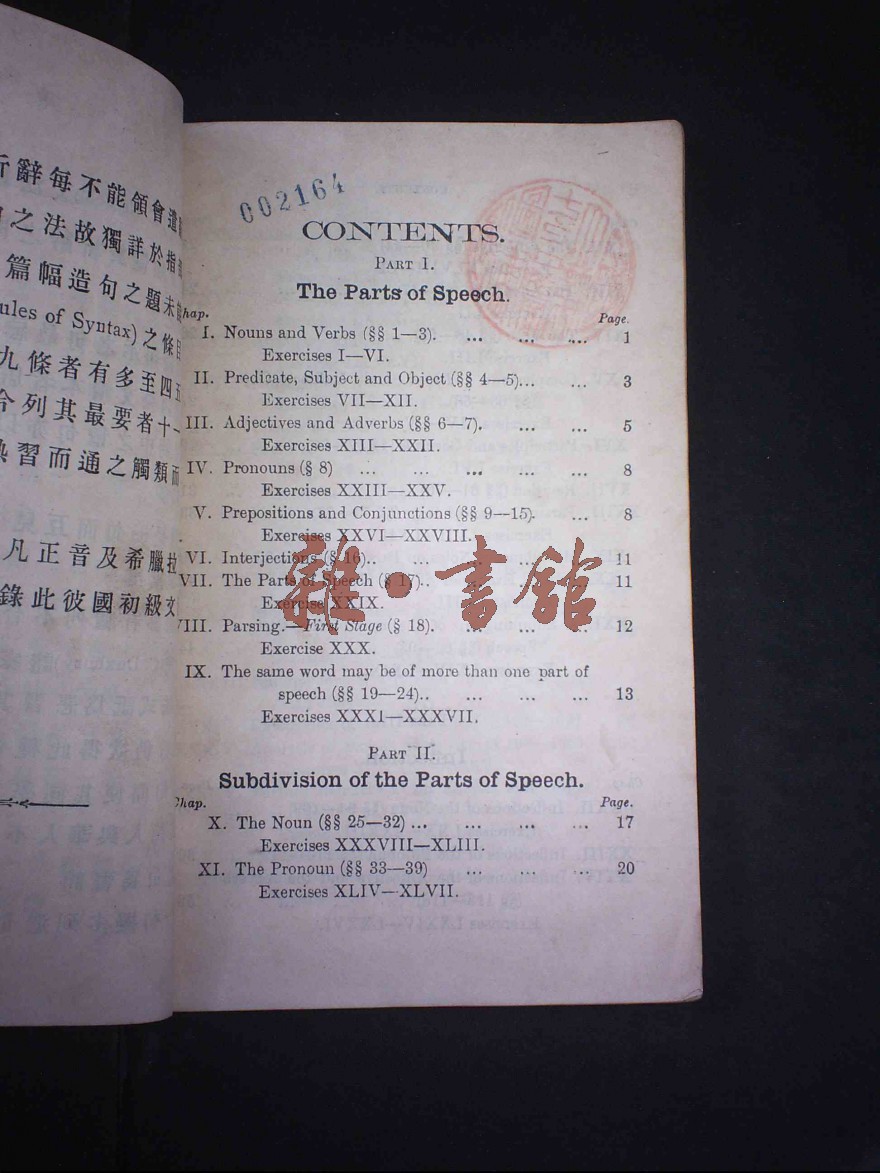 辭每不能領會遣
之法故獨詳於指
篇幅造句之題未
ules of Syntax)之條目
九條者有多至四五
列其最要者十一
習而通之觸類而
凡正音及希臘拉
錄此彼國初級文
002164
CONTENTS.
PART I.
The Parts of Speech.
hap. Page.
I. Nouns and Verbs (§§ 1—3). ... ... ... 1
Exercises I—VI.
II. Predicate, Subject and Object (§§ 4—5)... ... 3
Exercises VII—XII.
III. Adjectives and Adverbs (§§ 6—7). ... ... 5
Exercises XIII—XXII.
IV. Pronouns (§ 8) ... ... ... ... 8
Exercises XXIII—XXV.
V. Prepositions and Conjunctions (§§ 9—15). ... 8
Exercises XXVI—XXVIII.
VI. Interjections (§ 16).. ... ... ... ... 11
VII. The Parts of Speech (§ 17).. ... ... ... 11
Exercise XXIX.
VIII. Parsing.—First Stage (§ 18). ... ... ... 12
Exercise XXX.
IX. The same word may be of more than one part of
speech (§§ 19—24).. ... ... ... 13
Exercises XXX1—XXXVII.
PART II.
Subdivision of the Parts of Speech.
Chap. Page.
X. The Noun (§§ 25—32) ... ... ... ... 17
Exercises XXXVIII—XLIII.
XI. The Pronoun (§§ 33—39) ... ... ... 20
Exercises XLIV—XLVII.
雜·書館